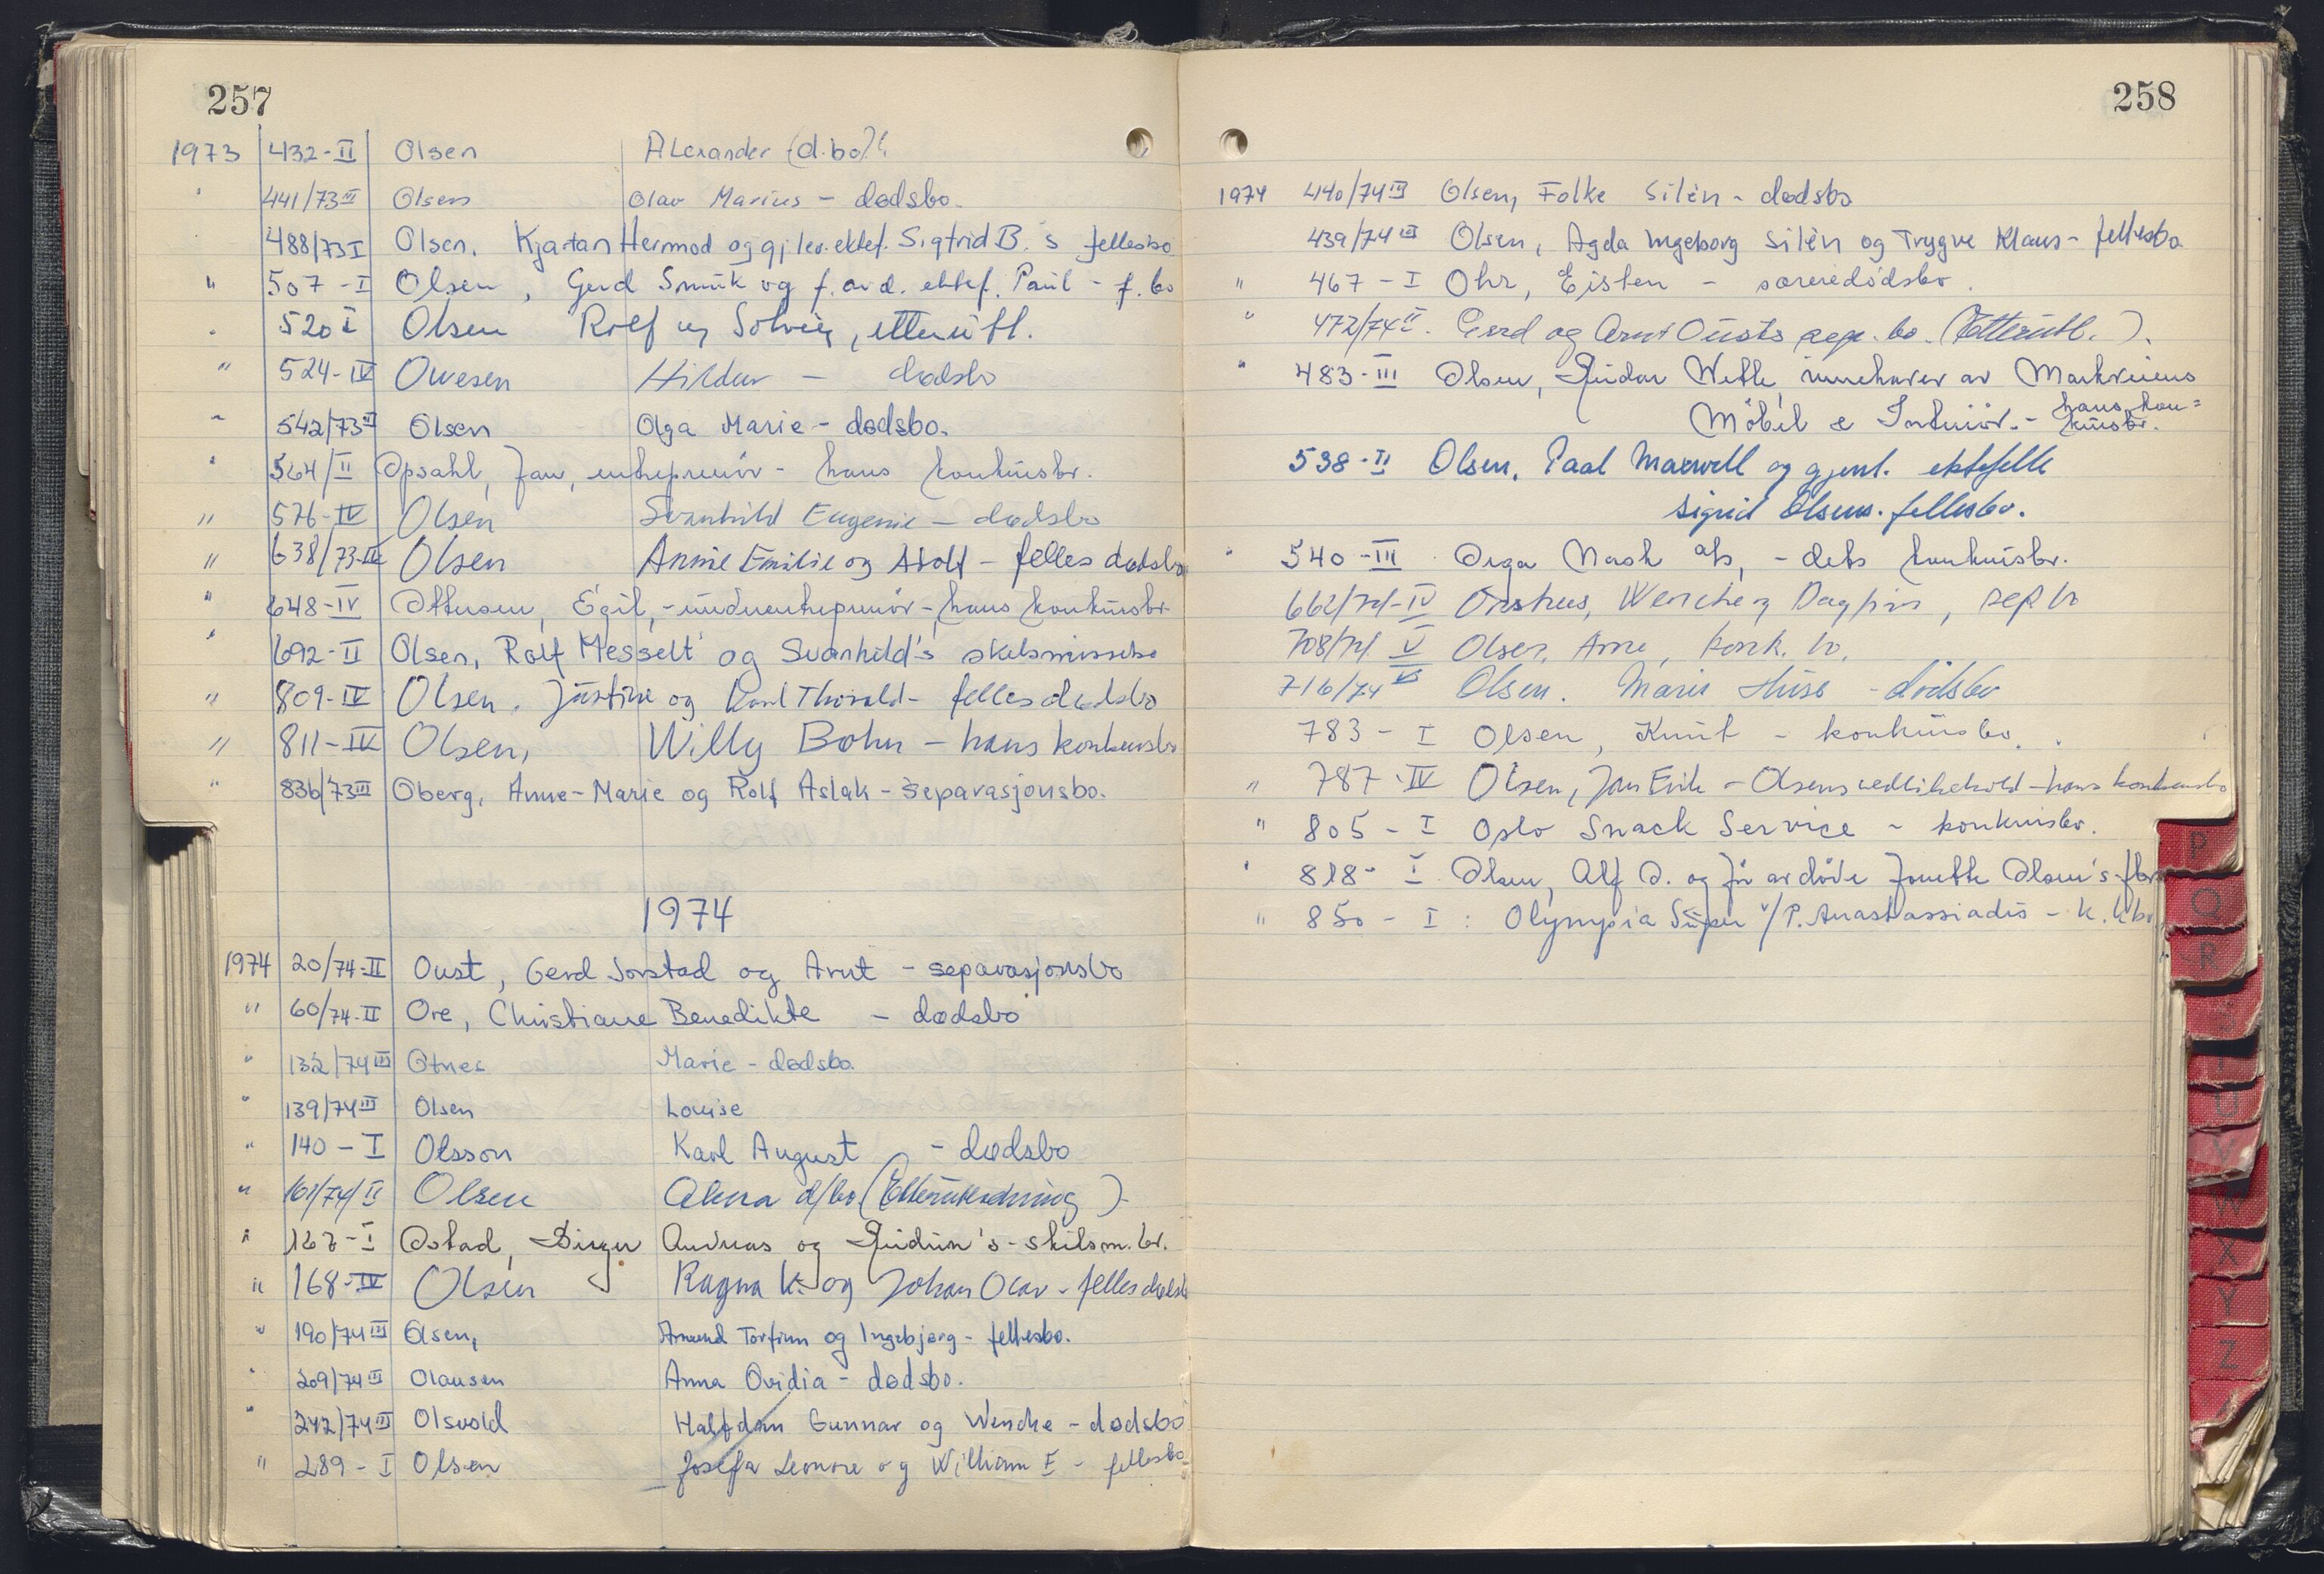 257
1973 432-II Olsen Alexander (d.bo)
" 441/73 III Olsen Olav Marius - dødsbo.
488/73 I Olsen, Kjartan Hermod og gj.lev. ektef. Sigfrid B.'s fellesbo
" 507-I Olsen, Gerd Smuk og f. avd. ektef. Paul - f. bo
" 520 I Olsen Rolf og Solveig, etterutl.
" 524-IV Owesen Hildur - dødsbo
" 542/73 III Olsen Olga Marie - dødsbo.
" 564/II Opsahl, Jan, entreprenør - hans konkursbr.
" 576-IV Olsen Svanhild Eugenie - dødsbo
" 638/73-IV Olsen Annie Emilie og Adolf - felles dødsbo
" 648-IV Ottersen, Egil, - underentreprenør - hans konkursbr
" 692-II Olsen, Rolf Messelt og Svanhild's skilsmissebo
" 809-IV Olsen, Justine og Karl Thorvald - felles dødsbo
" 811-IV Olsen, Willy Bohn - hans konkursbo
" 836/73 III Oberg, Anne-Marie og Rolf Aslak - separasjonsbo.
1974
1974 20/74-II Oust, Gerd Sorstad og Arnt - separasjonsbo
" 60/74-II Ore, Christiane Benedikte - dødsbo
" 132/74 III Otnes Marie - dødsbo
" 139/74 III Olsen Louise
" 140-I Olsson Karl August - dødsbo
" 161/74/II Olsen d/bo (Etterutlodning)
" 167-I Ostad, Birger Andreas og Gudrun's - skilsm. br.
" 168-IV Olsen Ragna K. og Johan Olav - felles dødsb
" 190/74 III Olsen, Amund Torfinn og Ingebjørg - fellesbo.
" 209/74 III Olausen Anna Ovidia - dødsbo.
" 242/74 III Olsvold Halfdan Gunnar og Wenche - dødsbo
" 289-I Olsen Josefa Leonore og William F - fellesbo
258
1974 440/74 III Olsen, Folke Silén - dødsbo
439/74 III Olsen, Agda Ingeborg Silén og Trygve Klaus - fellesbo
" 467-I Ohr, Eisten - særeiedødsbo.
" 472/74 II. Gerd og Arnt Ousts sep. bo. (Etterutl.).
" 483-III Olsen, Reidar Wette, innehaver av Markveiens
Møbel & Interiør. - hans kon=
kursbr.
538-II Olsen, Paal Maxwell og gjenl. ektefelle
Sigrid Olsens. fellesbo.
" 540-III Orga Mask A/s, - dets konkursbr.
662/74-IV Wenche og Dagfinn, sep bo
708/74 V Olsen, Arne, konk. bo.
716/74 VI Olsen. Marie Huse - dødsbo
783-I Olsen, Knut - konkursbo.
" 787-IV Olsen, Jan Erik - Olsens vedlikehold - hans konkursbo
" 805-I Oslo Snack Service - konkursbo.
" 818-I Olsen, Alf O. og før avdøde Jonette Olsen's fbo
" 850-I: Olympia Super v/P. Anastassiadis - k. kbo
P
Q
R
S
T
U
V
W
X
Y
Z